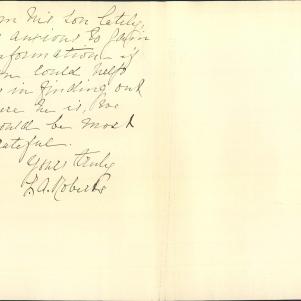 m his son lately,
s anxious to gain
formation - if
u could help
s in finding out
ere he is, we
ould be most
rateful.
Yours truly
L. A. Roberts